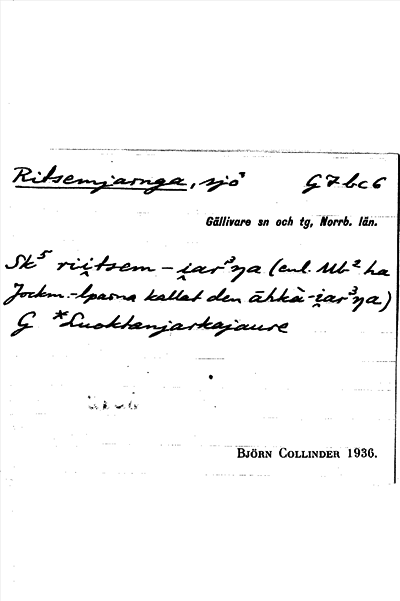 Ritsemjarnga, sjö G7bc6
Gällivare sn och tg, Norrb. län.
Sk⁵ riitsem-i̯ar³ŋa (enl. Ub² ha
Jockm.-lparna kallat den āhkà-i̯ar³ŋa)
G *Luoktanjarkajaure
BJÖRN COLLINDER 1936.